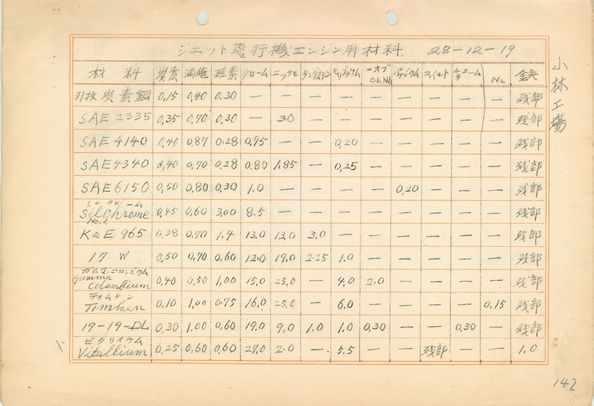 ジェット飛行機エンジン用材料 28-12-19
小林工場
材料 炭素 満俺 珪素 クローム ニッケル タングステン モリブデム コオブ Cb,Nb バナヂウム コバルト チタニーム N₂ 鉄
引抜炭素鋼 0.15 0.40 0.30 — — — — — — — — — 残部
SAE 2335 0.35 0.70 0.30 — 3.0 — — — — — — — 残部
SAE 4140 0.40 0.87 0.28 0.95 — — 0.20 — — — — — 残部
SAE 4340 0.40 0.70 0.28 0.80 1.85 — 0.25 — — — — — 残部
SAE 6150 0.50 0.80 0.30 1.0 — — — — 0.20 — — — 残部
Silchrome No.1 0.45 0.60 3.00 8.5 — — — — — — — — 残部
K&E 965 0.38 0.70 1.4 13.0 13.0 3.0 — — — — — — 残部
17 W 0.50 0.70 0.60 12.0 19.0 2.25 1.0 — — — — — 残部
ガムマ、コロンビウム
Gamma Columbium 0.40 0.50 1.00 15.0 25.0 — 4.0 2.0 — — — — 残部
ティムケン
Timken 0.10 1.00 0.75 16.0 25.0 — 6.0 — — — — 0.15 残部
19-19-DL 0.30 1.00 0.60 19.0 9.0 1.0 1.0 0.30 — — 0.30 — 残部
ビタリイウム
Vitallium 0.25 0.60 0.60 27.0 2.0 — 5.5 — — 残部 — — 1.0
142